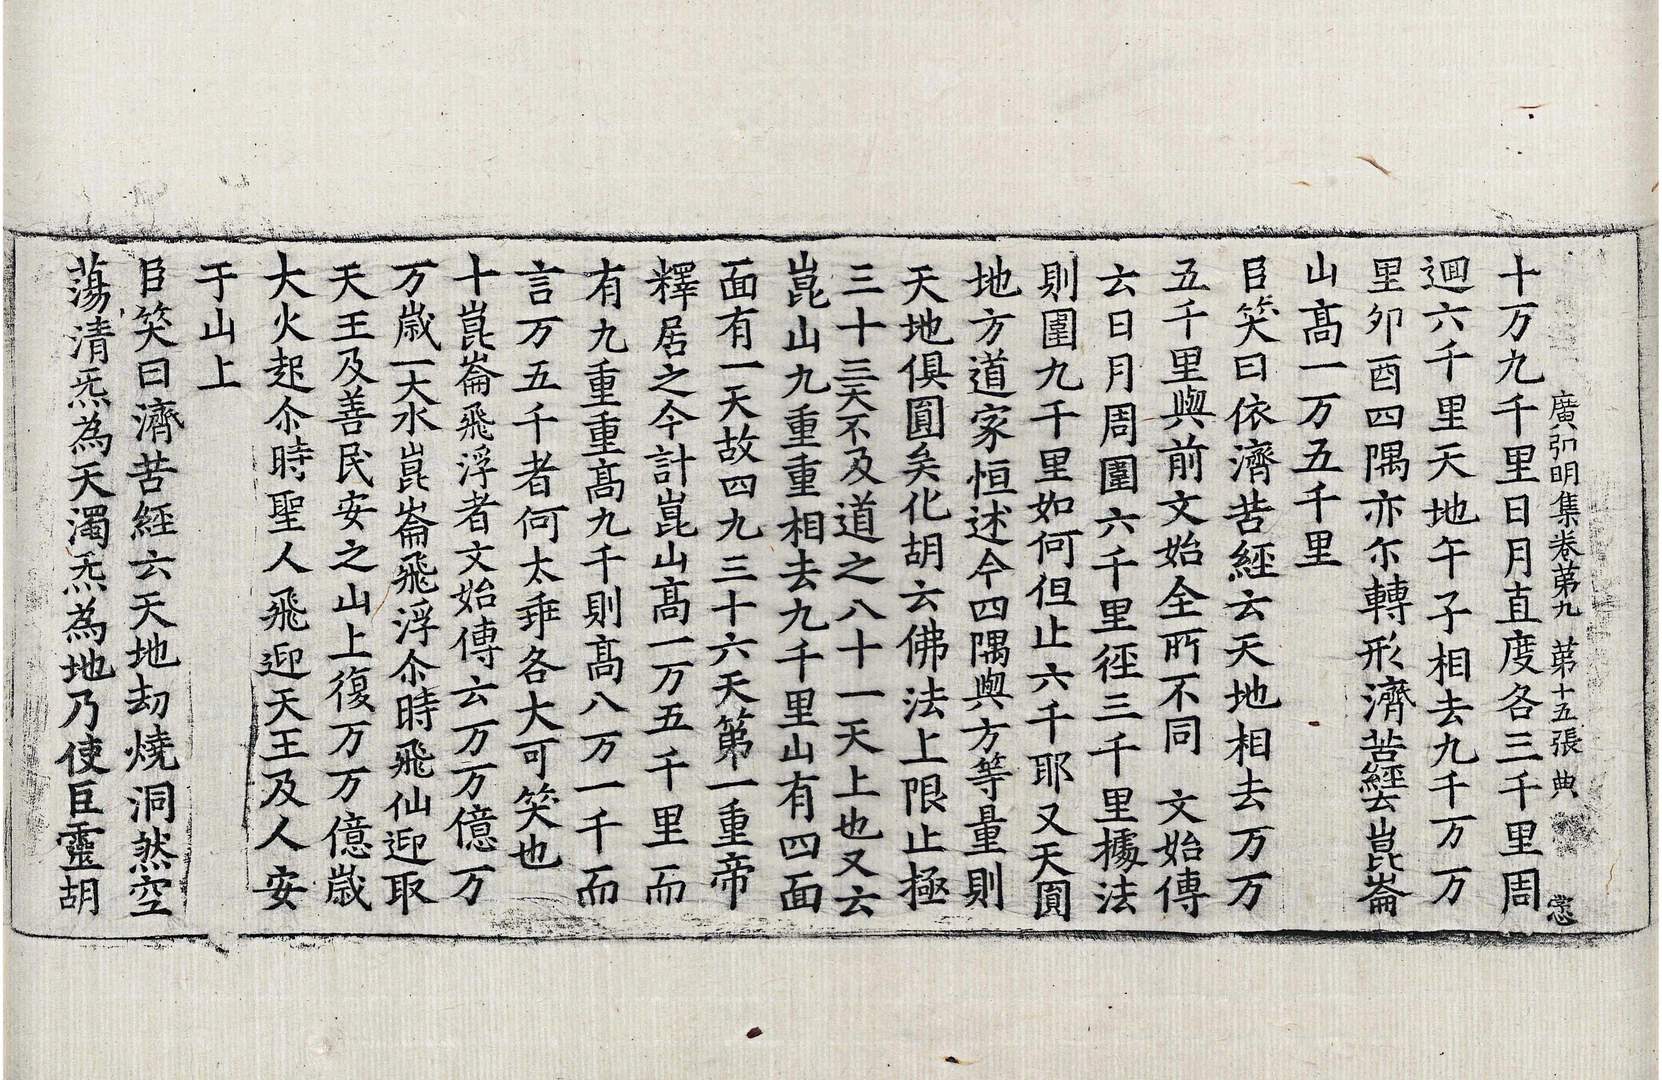 廣弘明集卷苐九　苐十五張　典
㦎
十万九千里日月直度各三千里周
迴六千里天地午子相去九千万万
里卯酉四隅亦尒轉形濟苦經云崑崙
山髙一万五千里
臣笑曰依濟苦經云天地相去万万
五千里與前文始全所不同　文始傳
云日月周圍六千里徑三千里據法
則圍九千里如何但止六千耶又天圓
地方道家恒述今四隅與方等量則
天地俱圓矣化胡云佛法上限止極
三十三天不及道之八十一天上也又云
崑山九重重相去九千里山有四面
面有一天故四九三十六天第一重帝
釋居之今計崑山髙一万五千里而
有九重重髙九千則髙八万一千而
言万五千者何太乖各大可笑也
十崑崙飛浮者文始傳云万万億万
万歲一大水崑崙飛浮尒時飛仙迎取
天王及善民安之山上復万万億歲
大火起尒時聖人飛迎天王及人安
于山上
臣笑曰濟苦經云天地劫燒洞然空
蕩清炁為天濁炁為地乃使巨靈胡